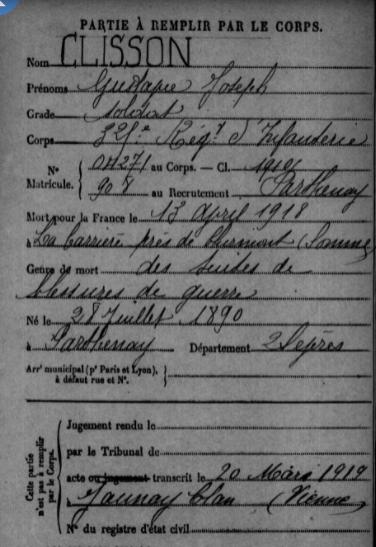 PARTIE À REMPLIR PAR LE CORPS.
Nom CLISSON
Prénoms Gustave Joseph
Grade soldat
Corps 325e Régt d'Infanterie
N° Matricule. { 04271 au Corps. — Cl. 1910
908 au Recrutement Parthenay
Mort pour la France le 13 April 1918
à La Carrière près de (Somme)
Genre de mort des suites de
blessures de guerre
Né le 28 Juillet 1890
à Parthenay Département 2 Sèvres
Arrt municipal (pr Paris et Lyon), à défaut rue et N°. }
Cette partie n'est pas à remplir par le Corps. {
Jugement rendu le
par le Tribunal de
acte ou jugement transcrit le 20 Mars 1919
à Jaunay Clan (Vienne)
N° du registre d'état civil